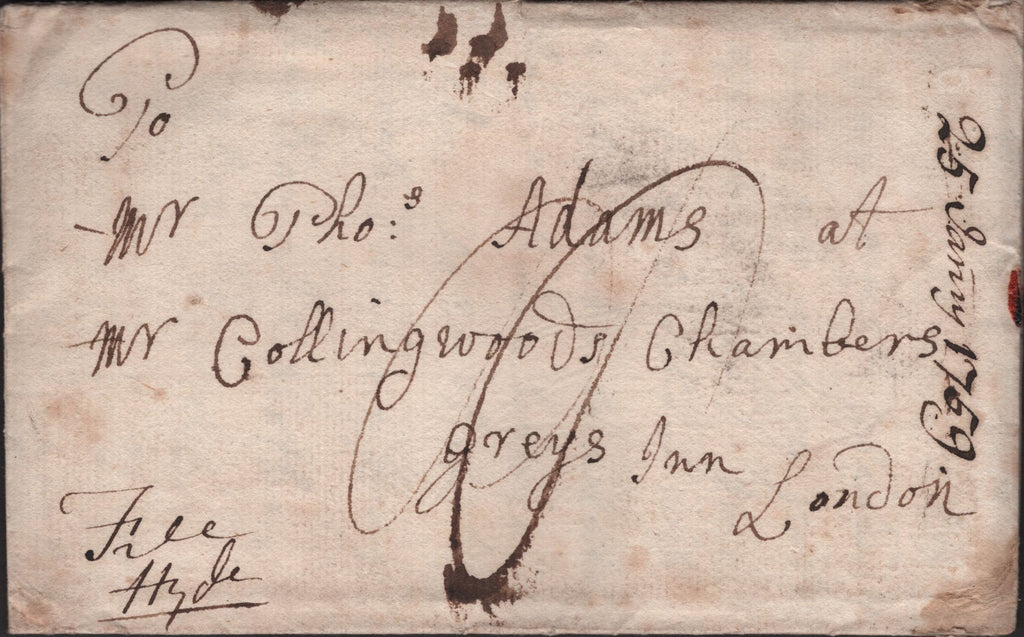 To
Mr Tho:s Adams at
Mr Collingwoods Chambers
Greys Inn
London
Free
Hyde
25 Janry 1769